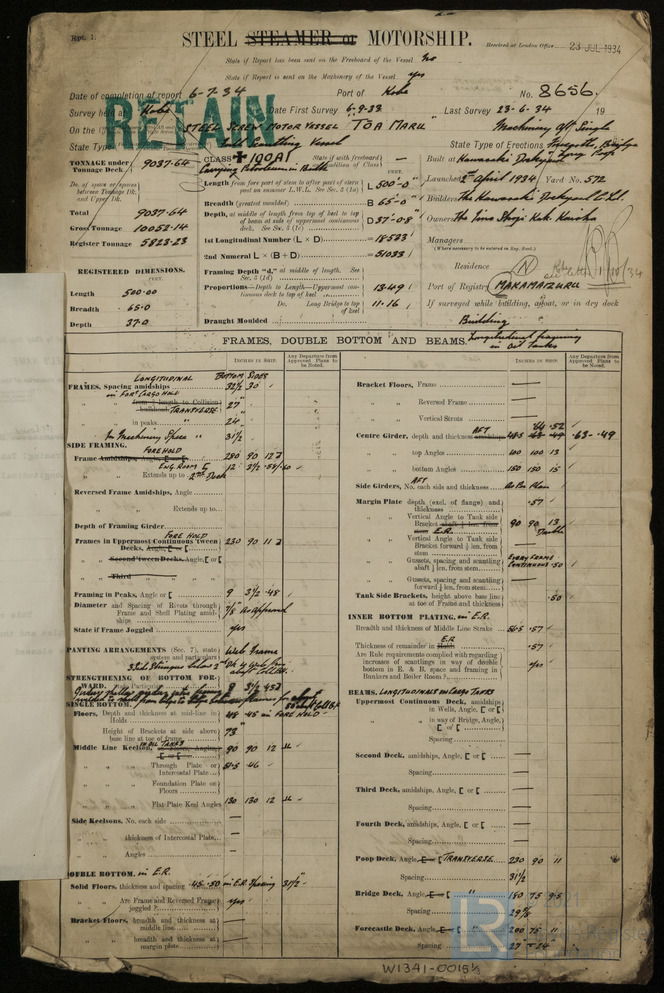 Rpt. 1.
STEEL STEAMER or MOTORSHIP.
Received at London Office 23 JUL 1934
State if Report has been sent on the Freeboard of the Vessel No
State if Report is sent on the Machinery of the Vessel yes
Date of completion of report 6-7-34 Port of Kobe No. 8656.
Survey held at Kobe Date First Survey 6-9-33 Last Survey 23-6-34 19
RETAIN
On the STEEL SCREW MOTOR VESSEL "TOA MARU" Machinery Aft Single
State Type Vessel State Type of Erections
TONNAGE under Tonnage Deck 9037.64
CLASS ✠ 100A1 State if with freeboard
Carrying Petroleum in Bulk
Built at Kawasaki Dockyard
Launched April 1934 Yard No. 572
Builders The Kawasaki Dockyard
Owners The Iino Shoji Kab. Kaisha
Managers
(Where necessary to be entered in Reg. Book.)
Residence
Port of Registry MAKAMAIZURU
If surveyed while building, afloat, or in dry dock
Building
Do. of space or spaces between Tonnage Dk. and Upper Dk.
Total 9037-64
Gross Tonnage 10052-14
Register Tonnage 5823-23
REGISTERED DIMENSIONS.
FEET.
Length 500.00
Breadth 65.0
Depth 37.0
Length from fore part of stem to after part of stern post on summer L.W.L. See Sec. 3 (1a) L 500'-0"
Breadth (greatest moulded) B 65-0
Depth, at middle of length from top of keel to top of beam at side of uppermost continuous deck. See Sec. 3 (1c) D 37-0.8
1st Longitudinal Number (L × D) 18523
2nd Numeral L × (B + D) 51033
Framing Depth "d," at middle of length. See Sec. 3 (1d)
Proportions—Depth to Length—Uppermost continuous deck to top of keel 13.49
Do. Long Bridge to top of keel 11.16
Draught Moulded
FRAMES, DOUBLE BOTTOM AND BEAMS.
Longitudinal framing in Oil Tanks
INCHES IN SHIP.
Any Departure from Approved Plans to be Noted.
INCHES IN SHIP.
Any Departure from Approved Plans to be Noted.
LONGITUDINAL BOTTOM SIDES
FRAMES, Spacing amidships 32½ 30
in FORE CARGO HOLD
from ⅕ length to Collision bulkhead TRANSVERSE 27"
in peaks 24"
In Machinery Space 31½
SIDE FRAMING.
FORE HOLD
Frame Amidships, Angle, 280 90 12
ENG. ROOM 12 3½
Extends up to 2nd Deck
Reversed Frame Amidships, Angle
Extends up to
Depth of Framing Girder
FORE HOLD
Frames in Uppermost Continuous 'tween Decks, Angle, 230 90 11
Second 'tween Decks, Angle,
Third
Framing in Peaks, Angle or 9 3½ .48
Diameter and Spacing of Rivets through Frame and Shell Plating amidships 7/8 As Approved
State if Frame Joggled yes
PANTING ARRANGEMENTS (Sec. 7), state system and particulars Web Frame
STRENGTHENING OF BOTTOM FORWARD.
SINGLE BOTTOM.
Floors, Depth and thickness at mid-line in Holds 48 .45 in FORE HOLD
Height of Brackets at side above base line at toe of frame 73"
IN OIL TANKS
Middle Line Keelson, 90 90 12
Through Plate or Intercostal Plate .46
Foundation Plate on Floors
Flat Plate Keel Angles 130 130 12
Side Keelsons, No. each side —
thickness of Intercostal Plate —
Angles —
DOUBLE BOTTOM. in E.R.
Solid Floors, thickness and spacing .45 .50 in E.R. Spacing 31½
Are Frame and Reversed Frames joggled? Yes
Bracket Floors, breadth and thickness at middle line —
breadth and thickness at margin plate —
Bracket Floors, Frame —
Reversed Frame —
Vertical Struts —
Centre Girder, depth and thickness AFT .64 .52 .63 - .49
top Angles 100 100 13
bottom Angles 150 150 15
AFT
Side Girders, No. each side and thickness As Per Plan
Margin Plate depth (excl. of flange) and thickness .57
Vertical Angle to Tank side Bracket E.R. 90 90 13 Double
Vertical Angle to Tank side Bracket forward ¼ len. from stem —
Gussets, spacing and scantling abaft ¼ len. from stem EVERY FRAME CONTINUOUS .50
Gussets, spacing and scantling forward ¼ len. from stem
Tank Side Brackets, height above base line at toe of Frame and thickness .50
INNER BOTTOM PLATING. in E.R.
Breadth and thickness of Middle Line Strake .57
Thickness of remainder in E.R. .57
Are Rule requirements complied with regarding increases of scantlings in way of double bottom in E. & B. space and framing in Bunkers and Boiler Room? Yes
BEAMS. LONGITUDINALS in CARGO TANKS
Uppermost Continuous Deck, amidships in Wells, Angle, or —
in way of Bridge, Angle, or —
Spacing —
Second Deck, amidships, Angle, or —
Spacing —
Third Deck, amidships, Angle, or —
Spacing —
Fourth Deck, amidships, Angle, or —
Spacing —
Poop Deck, Angle, TRANSVERSE 230 90 11
Spacing 31½
Bridge Deck, Angle, " 180 75 9.5
Spacing 29
Forecastle Deck, Angle, " 200 75 11
Spacing 27" & 24"
W1341-0015⅓